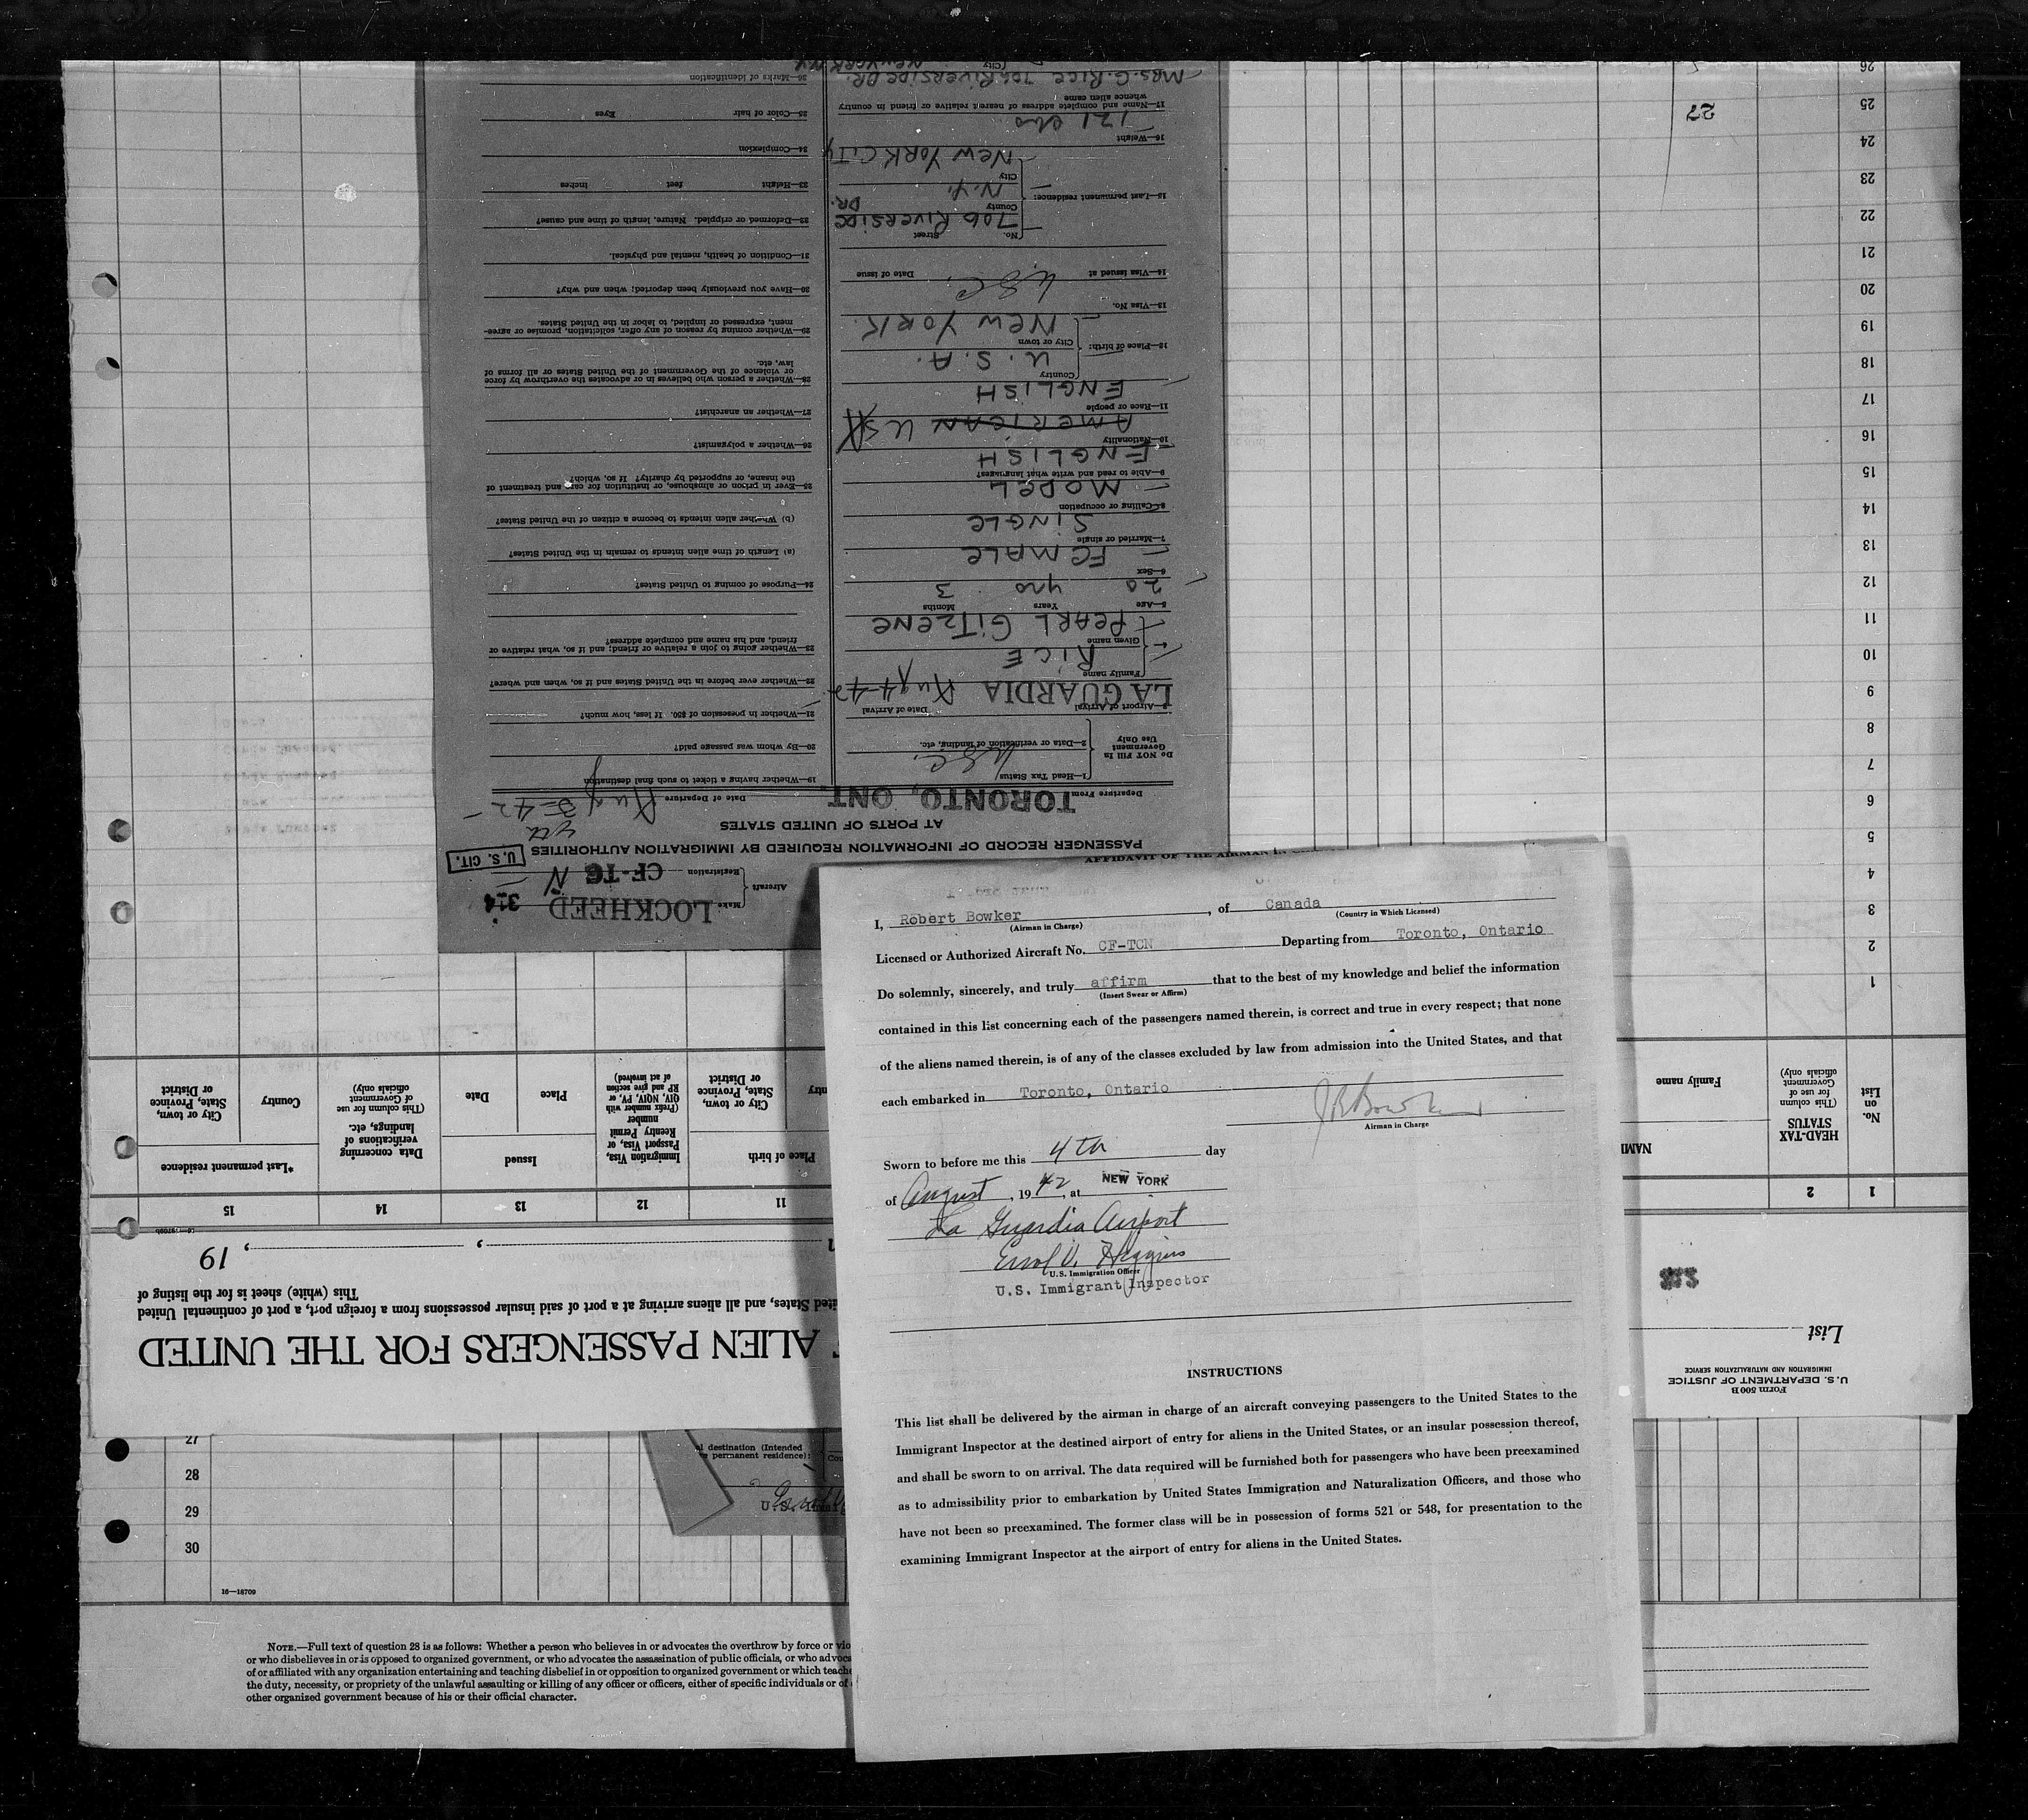 AFFIDAVIT OF THE AIRMAN IN
I, Robert Bowker , of Canada
(Airman in Charge) (Country in Which Licensed)
Licensed or Authorized Aircraft No. CF-TCN Departing from Toronto, Ontario
Do solemnly, sincerely, and truly affirm that to the best of my knowledge and belief the information
(Insert Swear or Affirm)
contained in this list concerning each of the passengers named therein, is correct and true in every respect; that none
of the aliens named therein, is of any of the classes excluded by law from admission into the United States, and that
each embarked in Toronto, Ontario
Airman in Charge
Sworn to before me this 4th day
of August, 1942, at NEW YORK
La Guardia Airport
Errol V. Higgins
U.S. Immigration Officer
U.S. Immigrant Inspector
INSTRUCTIONS
This list shall be delivered by the airman in charge of an aircraft conveying passengers to the United States to the
Immigrant Inspector at the destined airport of entry for aliens in the United States, or an insular possession thereof,
and shall be sworn to on arrival. The data required will be furnished both for passengers who have been preexamined
as to admissibility prior to embarkation by United States Immigration and Naturalization Officers, and those who
have not been so preexamined. The former class will be in possession of forms 521 or 548, for presentation to the
examining Immigrant Inspector at the airport of entry for aliens in the United States.
Aircraft
Make LOCKHEED 314
Registration CF-TC N
U. S. CIT.
PASSENGER RECORD OF INFORMATION REQUIRED BY IMMIGRATION AUTHORITIES
AT PORTS OF UNITED STATES
Departure From TORONTO, ONT. Date of Departure Aug 3-42
Do NOT Fill In
Government
Use Only
1—Head Tax Status
2—Data or verification of landing, etc. USC
3—Airport of Arrival Date of Arrival
LA GUARDIA Aug 4-42
Family name RICE
Given name PEARL GITZENE
5—Age Years Months
20 yrs 3
6—Sex FEMALE
7—Married or single SINGLE
8—Calling or occupation MODEL
9—Able to read and write what languages? ENGLISH
10—Nationality AMERICAN USA
11—Race or people ENGLISH
12—Place of birth:
Country U.S.A.
City or town NEW YORK
13—Visa No.
14—Visa issued at USC Date of issue
15—Last permanent residence:
No. Street 706 RIVERSIDE DR.
County N.Y.
City NEW YORK CITY
16—Weight 121 lbs
17—Name and complete address of nearest relative or friend in country
whence alien came
MRS. G. RICE 706 RIVERSIDE DR.
City NEW YORK NY
19—Whether having a ticket to such final destination
20—By whom was passage paid?
21—Whether in possession of $50. If less, how much?
22—Whether ever before in the United States and if so, when and where?
23—Whether going to join a relative or friend; and if so, what relative or
friend, and his name and complete address?
24—Purpose of coming to United States?
(a) Length of time alien intends to remain in the United States?
(b) Whether alien intends to become a citizen of the United States?
25—Ever in prison or almshouse, or institution for care and treatment of
the insane, or supported by charity? If so, which?
26—Whether a polygamist?
27—Whether an anarchist?
28—Whether a person who believes in or advocates the overthrow by force
or violence of the Government of the United States or all forms of
law, etc.
29—Whether coming by reason of any offer, solicitation, promise or agree-
ment, expressed or implied, to labor in the United States.
30—Have you previously been deported; when and why?
31—Condition of health, mental and physical.
32—Deformed or crippled. Nature, length of time and cause?
33—Height feet inches
34—Complexion
35—Color of hair Eyes
36—Marks of identification
Form 500 B
U. S. DEPARTMENT OF JUSTICE
IMMIGRATION AND NATURALIZATION SERVICE
List
ALIEN PASSENGERS FOR THE UNITED
ited States, and all aliens arriving at a port of said insular possessions from a foreign port, a part of continental United
This (white) sheet is for the listing of
, 19
1 2 11 12 13 14 15
No.
on
List
HEAD-TAX
STATUS
(This column
for use of
Government
officials only)
NAME
Family name
Place of birth
City or town,
State, Province
or District
Immigration Visa,
Passport Visa, or
Reentry Permit
number
(Prefix number with
QIV, NQIV, PV, or
RP and give section
of act involved)
Issued
Place Date
Data concerning
verifications of
landings, etc.
(This column for use
of Government
officials only)
*Last permanent residence
Country
City or town,
State, Province
or District
1
2
3
4
5
6
7
8
9
10
11
12
13
14
15
16
17
18
19
20
21
22
23
24
25
26
27
27
28
29
30
16—18709
al destination (Intended
e permanent residence):
NOTE.—Full text of question 28 is as follows: Whether a person who believes in or advocates the overthrow by force or vio
or who disbelieves in or is opposed to organized government, or who advocates the assassination of public officials, or who advoca
of or affiliated with any organization entertaining and teaching disbelief in or opposition to organized government or which teache
the duty, necessity, or propriety of the unlawful assaulting or killing of any officer or officers, either of specific individuals or of
other organized government because of his or their official character.